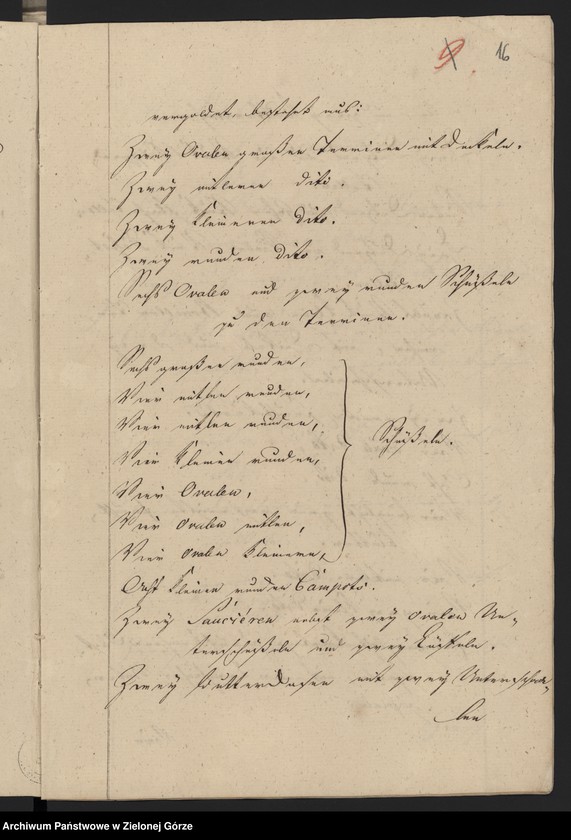 9. 16
vergoldet, bestehet aus:
Zwey Ovalen großen Terrinen mit Deckeln.
Zwey mitleren dito.
Zwey kleineren dito.
Zwey runden dito.
Sechs Ovalen und zwey runden Schüßeln
zu den Terrinen.
Sechs großen runden,
Vier mitlen runden,
Vier mitlen runden,
Vier kleinen runden,
Vier Ovalen,
Vier ovalen mitlen,
Vier ovalen kleineren,
Schüßeln.
Acht kleinen runden Campots.
Zwey Sauciéren nebst zwey ovalen Un-
terschüßeln und zwey Löffeln.
Zwey Butterdosen mit zwey Unterscha-
len
Archiwum Państwowe w Zielonej Górze